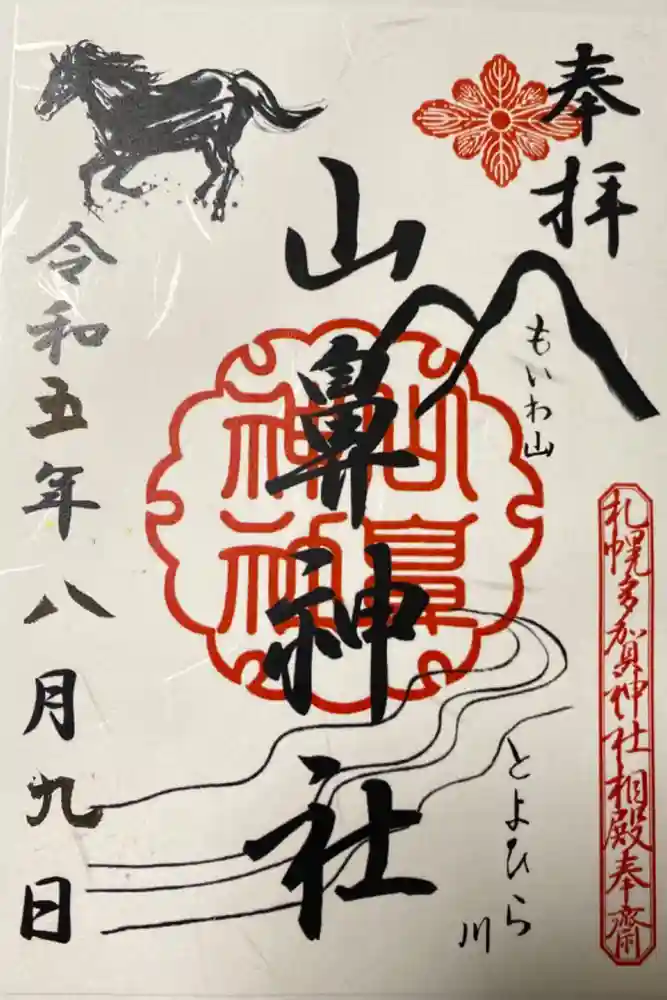 奉拝
もいわ山
札幌多加具神社相殿奉齋
山鼻神社
山鼻神社
とよひら川
令和五年八月九日